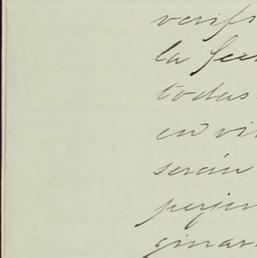 verifi
la fec
todas
en vi
serán
perju
ginar